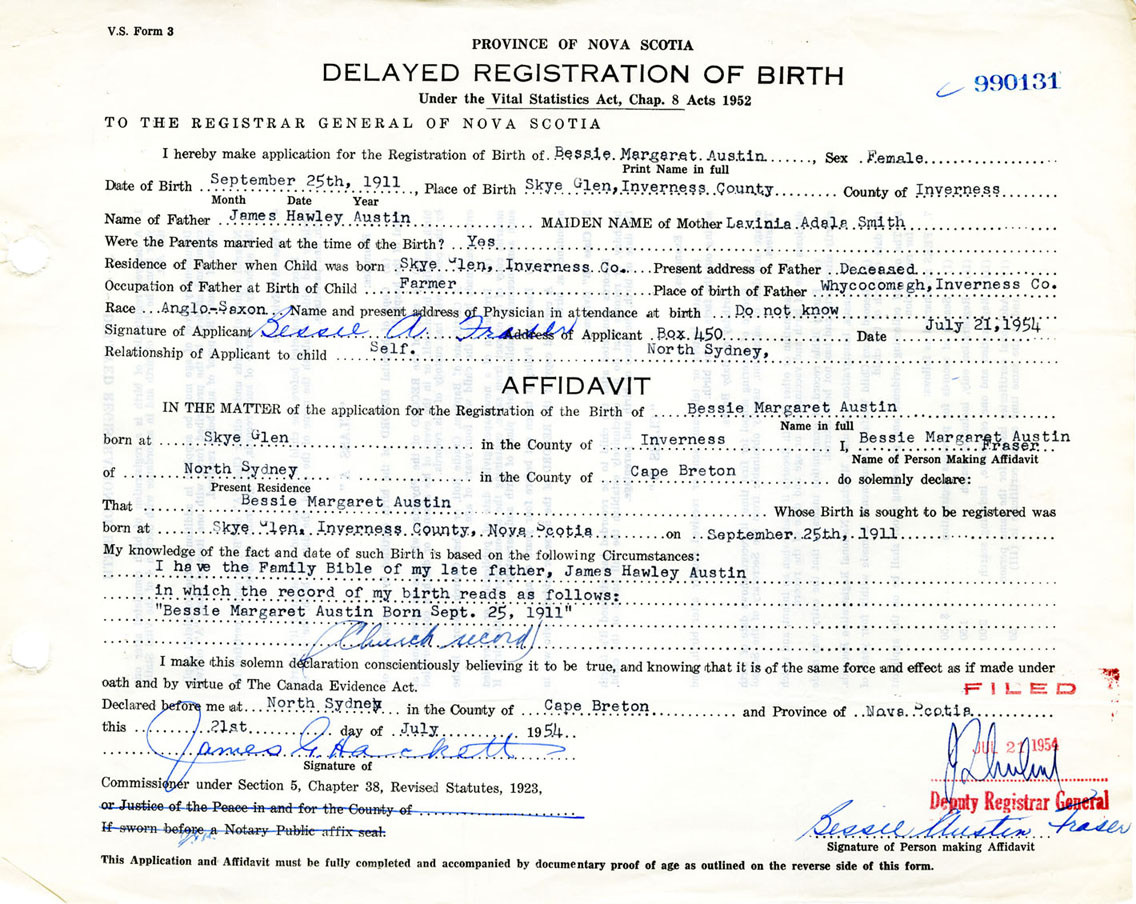 V.S. Form 3
PROVINCE OF NOVA SCOTIA
DELAYED REGISTRATION OF BIRTH
990131
Under the Vital Statistics Act, Chap. 8 Acts 1952
TO THE REGISTRAR GENERAL OF NOVA SCOTIA
I hereby make application for the Registration of Birth of Bessie Margaret Austin, Sex Female
Print Name in full
Date of Birth September 25th, 1911, Place of Birth Skye Glen, Inverness County County of Inverness
Month Date Year
Name of Father James Hawley Austin MAIDEN NAME of Mother Lavinia Adela Smith
Were the Parents married at the time of the Birth? Yes
Residence of Father when Child was born Skye Glen, Inverness Co. Present address of Father Deceased
Occupation of Father at Birth of Child Farmer Place of birth of Father Whycocomagh, Inverness Co.
Race Anglo-Saxon Name and present address of Physician in attendance at birth Do not know
Signature of Applicant Bessie A. Fraser Address of Applicant Box 450 Date July 21, 1954
Relationship of Applicant to child Self. North Sydney,
AFFIDAVIT
IN THE MATTER of the application for the Registration of the Birth of Bessie Margaret Austin
Name in full
born at Skye Glen in the County of Inverness I, Bessie Margaret Austin Fraser
Name of Person Making Affidavit
of North Sydney in the County of Cape Breton do solemnly declare:
Present Residence
That Bessie Margaret Austin Whose Birth is sought to be registered was
born at Skye Glen, Inverness County, Nova Scotia on September 25th, 1911
My knowledge of the fact and date of such Birth is based on the following Circumstances:
I have the Family Bible of my late father, James Hawley Austin
in which the record of my birth reads as follows:
"Bessie Margaret Austin Born Sept. 25, 1911"
(Church record)
I make this solemn declaration conscientiously believing it to be true, and knowing that it is of the same force and effect as if made under
oath and by virtue of The Canada Evidence Act.
FILED
Declared before me at North Sydney in the County of Cape Breton and Province of Nova Scotia
this 21st day of July 1954
James G. Hackett
Signature of
JUL 21 1954
Commissioner under Section 5, Chapter 38, Revised Statutes, 1923,
Deputy Registrar General
or Justice of the Peace in and for the County of
If sworn before a Notary Public affix seal.
Bessie Austin Fraser
Signature of Person making Affidavit
This Application and Affidavit must be fully completed and accompanied by documentary proof of age as outlined on the reverse side of this form.